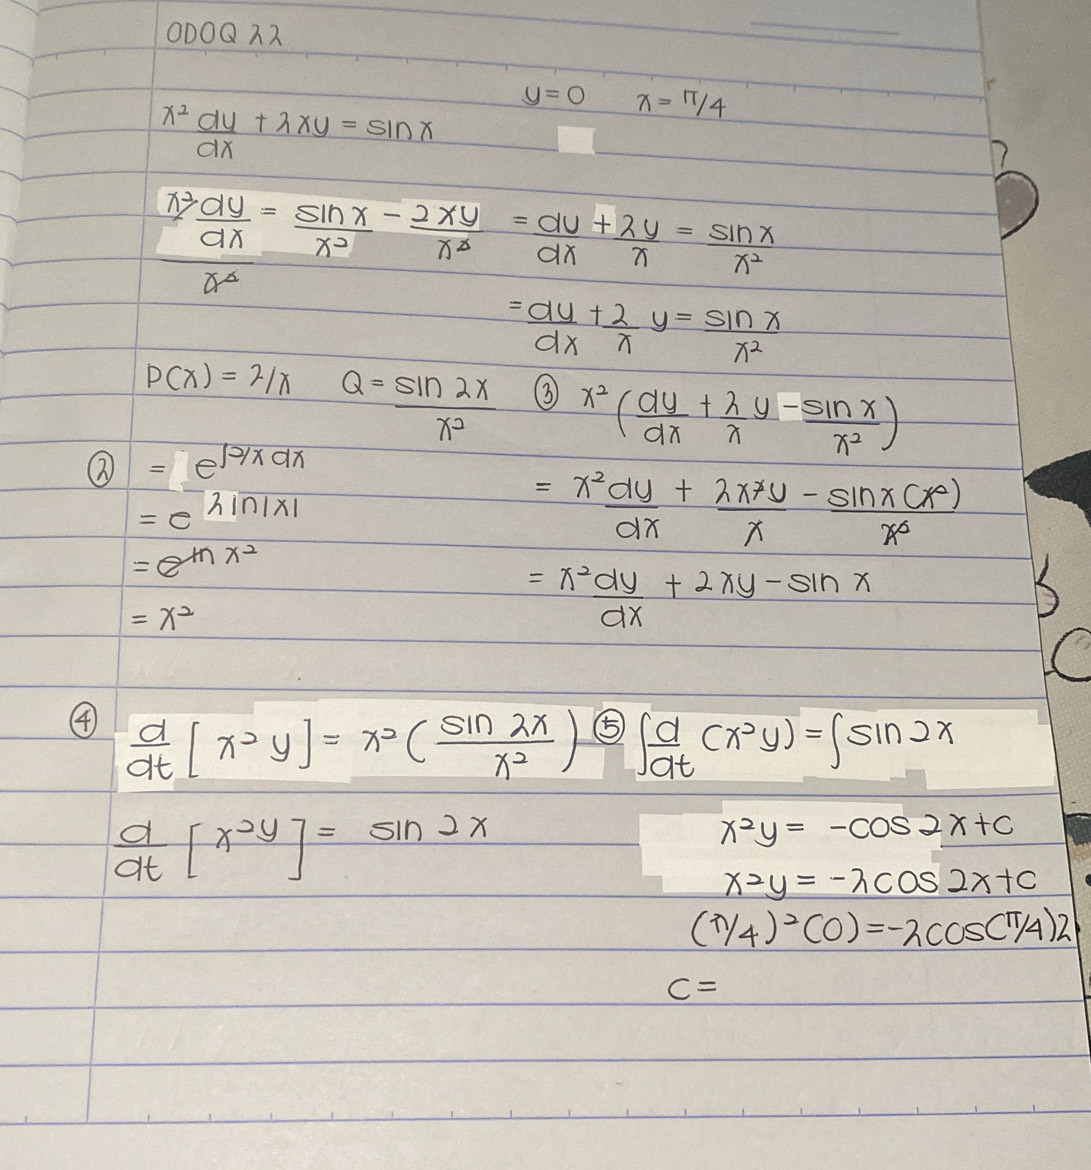 ODOQ 22
y=0 x=π/4
x² dy/dx + 2xy = sin x
x² dy/dx / x² = sin x/x² - 2xy/x² = dy/dx + 2y/x = sin x/x²
= dy/dx + 2/x y = sin x/x²
P(x) = 2/x Q = sin 2x/x²
③ x² (dy/dx + 2/x y - sin x/x²)
② = e^∫2/x dx
= e^2 ln|x|
= e^ln x²
= x²
= x² dy/dx + 2x²y/x - sin x(x²)/x²
= x² dy/dx + 2xy - sin x
④ d/dt [x²y] = x² (sin 2x/x²)
d/dt [x²y] = sin 2x
⑤ ∫ d/dt (x²y) = ∫ sin 2x
x²y = -cos 2x + c
x²y = -2cos 2x + c
(π/4)²(0) = -2cos(π/4)2
c =